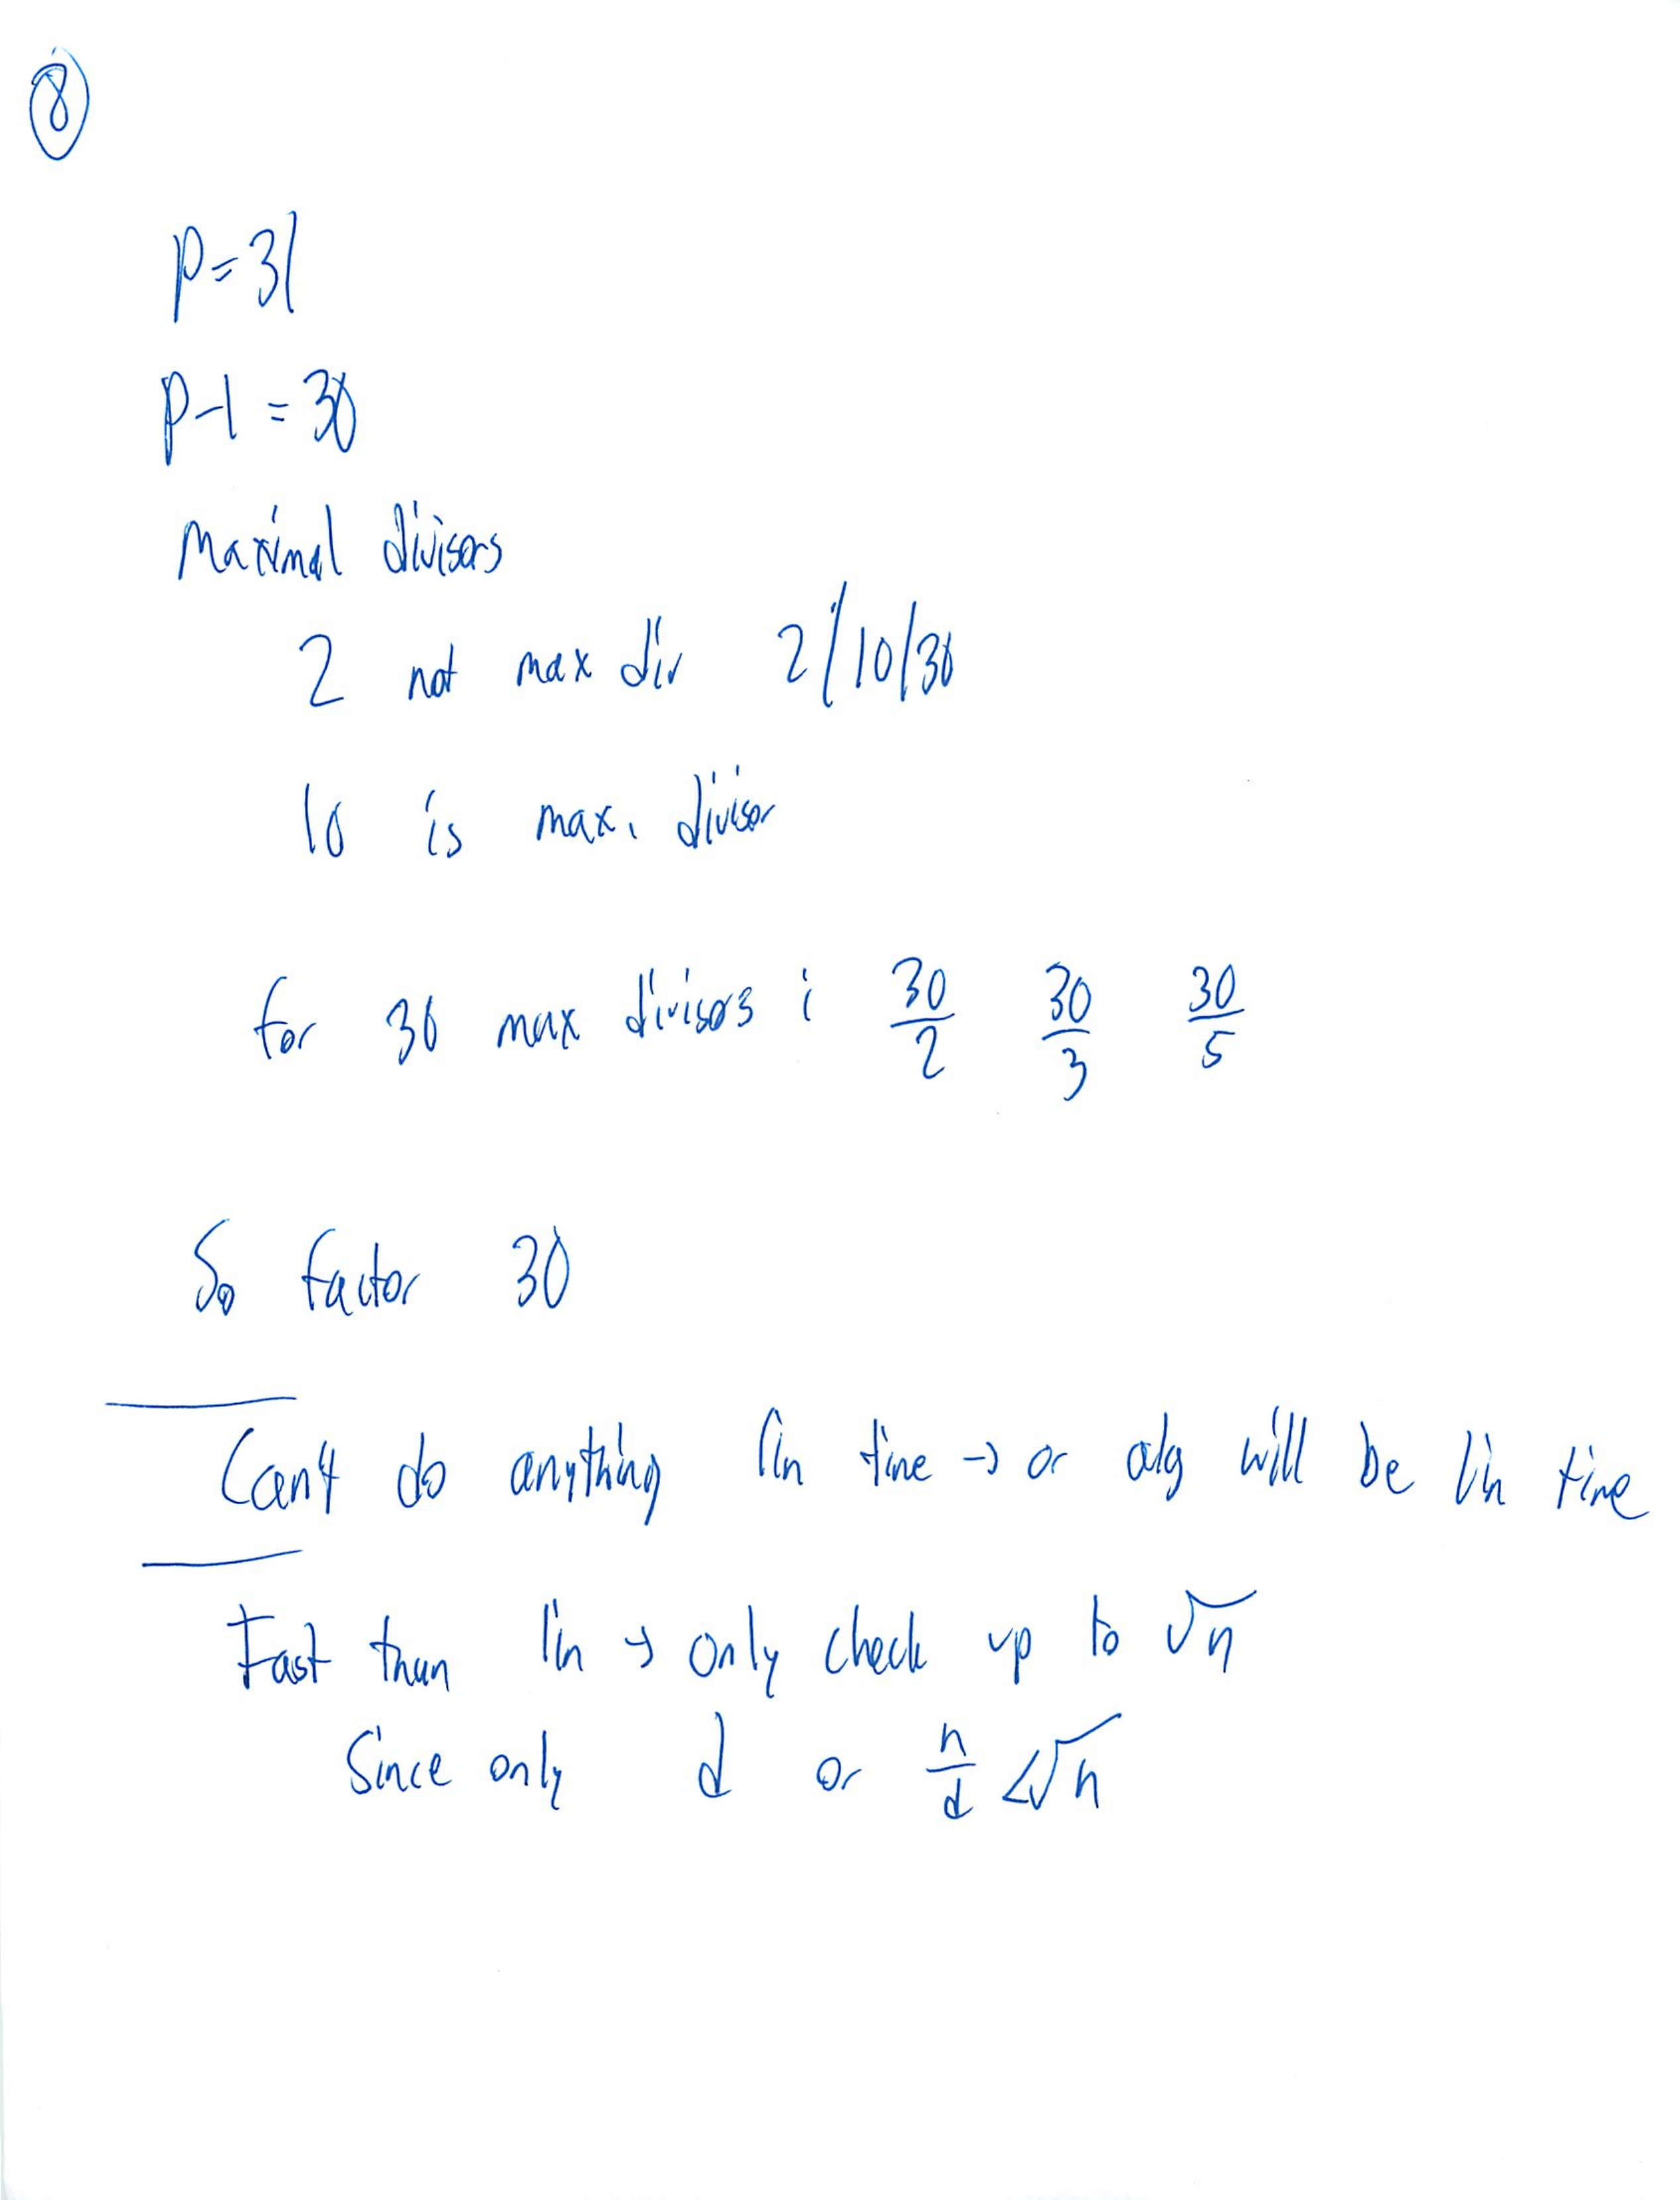 8
p=31
p-1 = 30
Maximal divisors
2 not max div 2/10/30
10 is max. divisor
for 30 max divisors : 30/2 30/3 30/5
So factor 30
Can't do anything lin time → or alg will be lin time
Fast than lin → only check up to √n
Since only d or n/d <√n